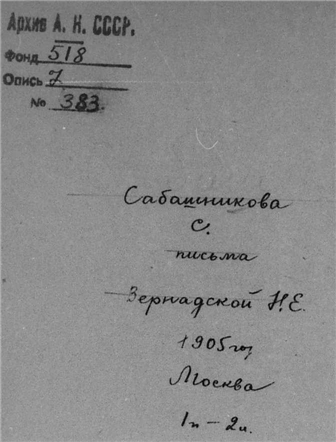 Архив А. Н. СССР.
Фонд 518
Опись 7
№ 383.
Сабашникова
С.
письма
Вернадской Н.Е.
1905 год
Москва
1п – 2л.